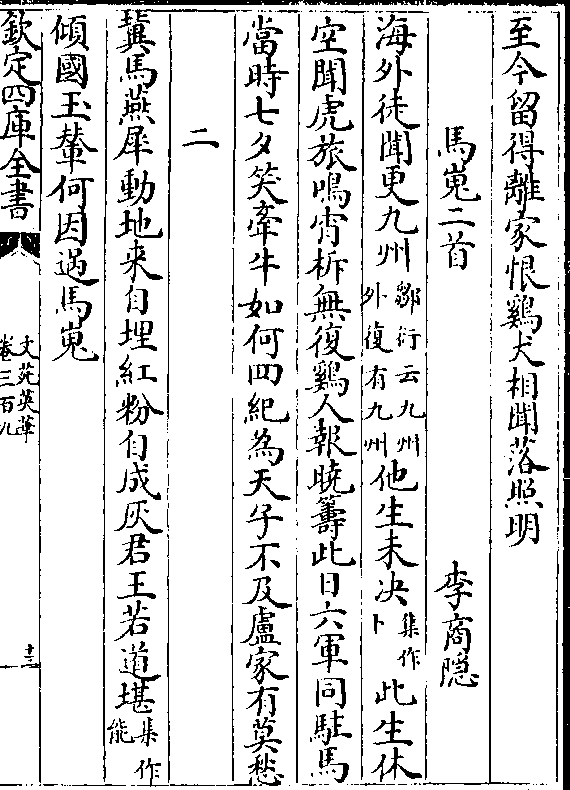 至今留得離家恨鷄犬相聞落照明
馬嵬二首 李商隠
海外徒聞更九州鄒衍云九州外復有九州他生未决集作卜此生休
空聞虎旅鳴宵柝無復鷄人報曉籌此日六軍同駐馬
當時七夕笑牽牛如何四紀為天子不及盧家有莫愁
二
冀馬燕犀動地来自埋紅粉自成灰君王若道堪集作能
傾國玉輦何因過馬嵬
欽定四庫全書
文苑英華
卷三百九
十三